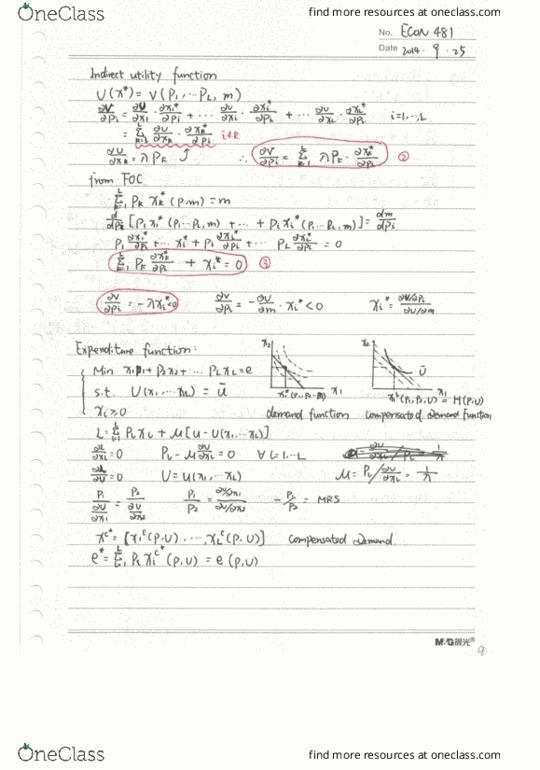 OneClass
find more resources at oneclass.com
No. Econ 481
Date 2014 . 9 . 25
Indirect utility function
U(x*) = V(P₁, ... P_L, m)
∂V/∂Pᵢ = ∂U/∂x₁ · ∂x₁*/∂Pᵢ + ... ∂U/∂xᵢ · ∂xᵢ*/∂Pᵢ + ... ∂U/∂x_L · ∂x_L*/∂Pᵢ i=1,...,L
= Σ_{k=1}^L ∂U/∂x_k · ∂x_k*/∂Pᵢ i≠k
∂U/∂x_k = λP_k ∴ ∂V/∂Pᵢ = Σ_{k=1}^L λP_k · ∂x_k*/∂Pᵢ ②
from FOC
Σ_{k=1}^L P_k x_k*(P,m) = m
[P₁x₁*(P₁...P_L, m) + ... + PᵢXᵢ*(P₁...P_L, m)] = dm/dPᵢ
P₁ ∂x₁*/∂Pᵢ + ... xᵢ* + Pᵢ ∂xᵢ*/∂Pᵢ + ... P_L ∂x_L*/∂Pᵢ = 0
Σ_{k=1}^L P_k ∂x_k*/∂Pᵢ + xᵢ* = 0 ③
∂V/∂Pᵢ = -λxᵢ* <0 ∂V/∂Pᵢ = - ∂U/∂m · xᵢ* < 0 xᵢ* =
Expenditure function:
Min x₁P₁ + P₂x₂ + ... P_L x_L = e
s.t. U(x₁, ... x_L) = ū
xᵢ ≥ 0
x₂ x₁
x₁ ū
demand function compensated demand function
L = Σ_{i=1}^L Pᵢxᵢ + μ[u - U(x₁, ... x_L)]
∂L/∂xᵢ = 0 Pᵢ - μ ∂U/∂xᵢ = 0 ∀ i=1,...L
= 0 U = u(x₁, ... x_L) μ = Pᵢ / ∂U/∂xᵢ = 1/λ
P₁ / ∂U/∂x₁ = P₂ / ∂U/∂x₂ P₁/P₂ = ∂U/∂x₁ / ∂U/∂x₂ - P₁/P₂ = MRS
x^c* = [x₁^c(P,U) ... , x_L^c(P,U)] compensated demand.
e* = Σ_{i=1}^L Pᵢ xᵢ^c*(P,U) = e(P,U)
M&G晨光
9
OneClass
find more resources at oneclass.com